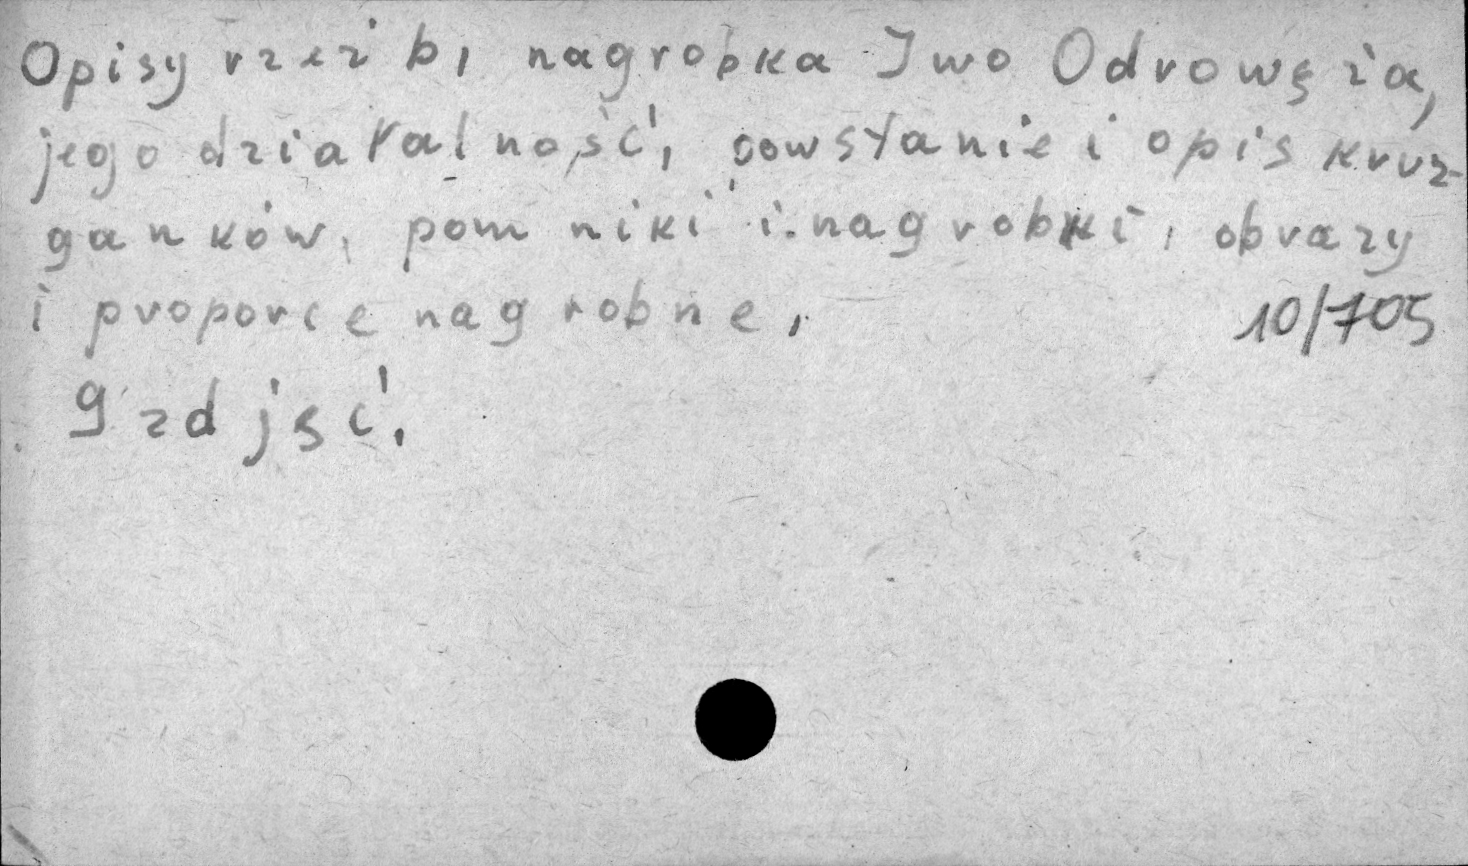 Opisy rzeźb, nagrobka Iwo Odrowęża,
jego działalność, powstanie i opis kruż-
ganków, pomniki i nagrobki, obrazy
i proporce nagrobne,
10/705
9 zdjęć.